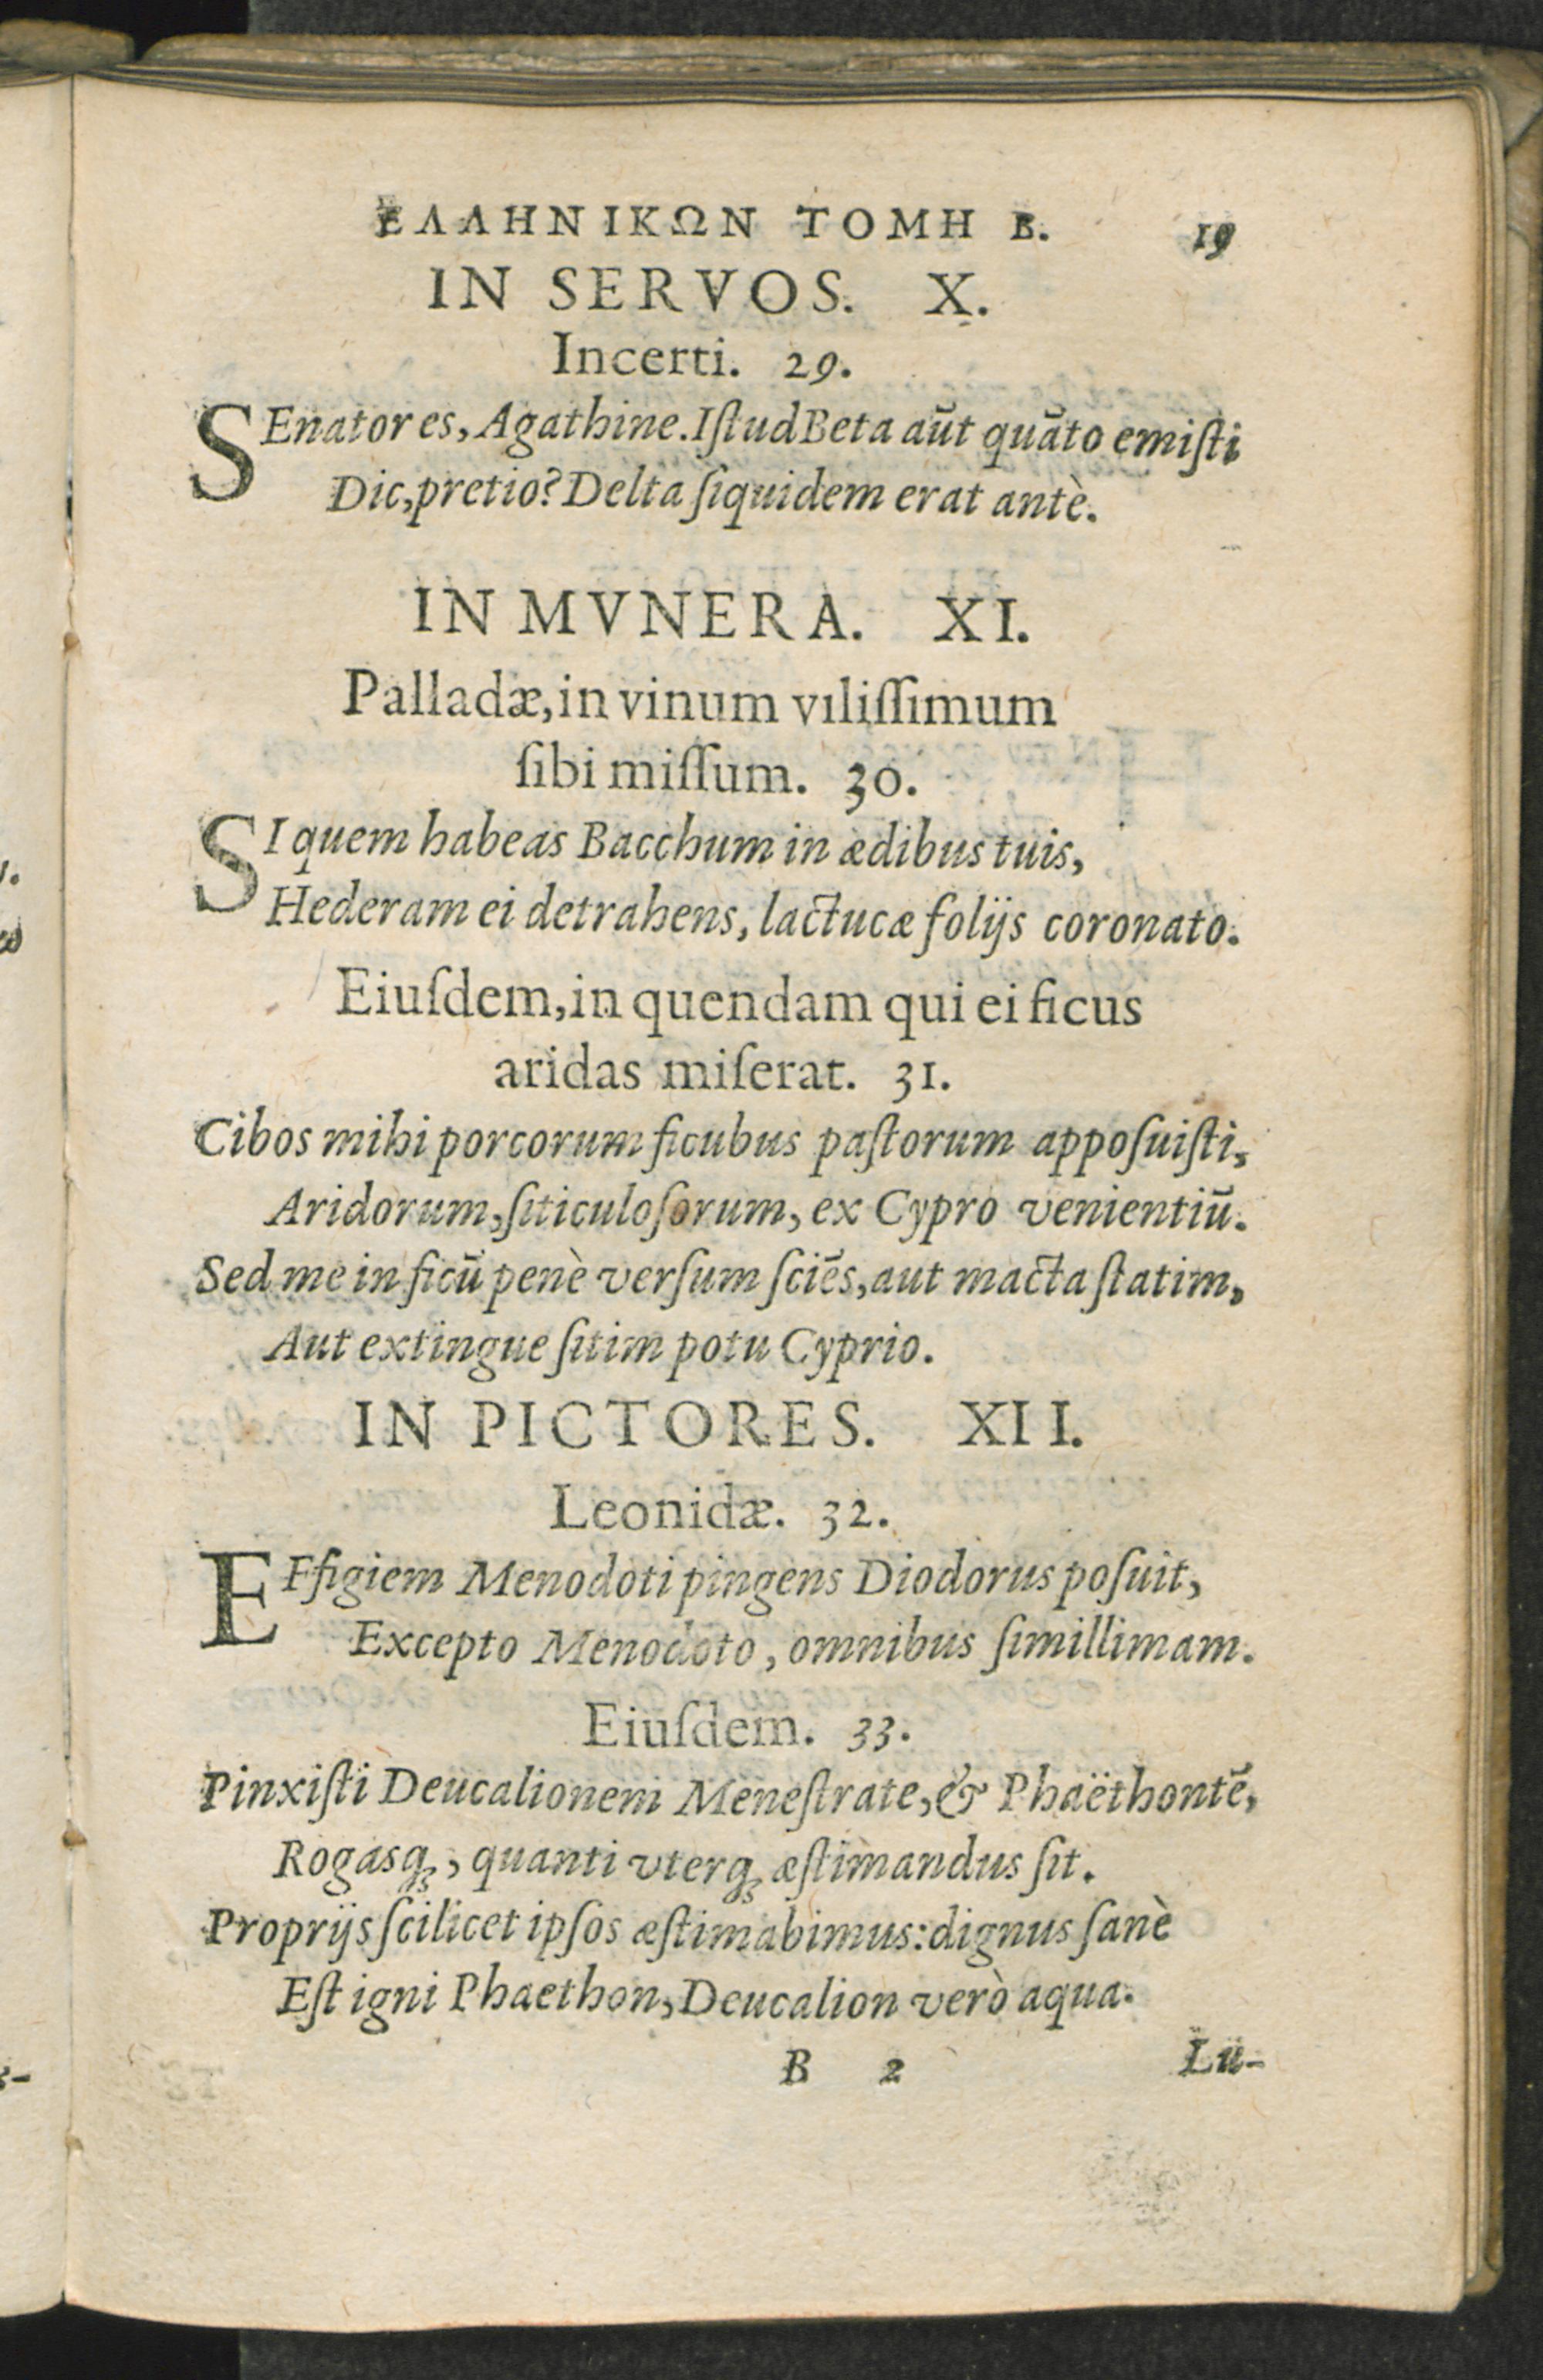 ΕΛΛΗΝΙΚΩΝ ΤΟΜΗ Β. 19
IN SERVOS. X.
Incerti. 29.
SEnator es, Agathine. Iſtud Beta aūt quāto emiſti
Dic, pretio? Delta ſiquidem erat antè.
IN MVNERA. XI.
Palladæ, in vinum viliſſimum
ſibi miſſum. 30.
SI quem habeas Bacchum in ædibus tuis,
Hederam ei detrahens, lactucæ folijs coronato.
Eiuſdem, in quendam qui ei ficus
aridas miſerat. 31.
Cibos mihi porcorum ficubus paſtorum appoſuiſti,
Aridorum, ſiticuloſorum, ex Cypro venientiū.
Sed me in ficū penè verſum ſciēs, aut macta ſtatim,
Aut extingue ſitim potu Cyprio.
IN PICTORES. XII.
Leonidæ. 32.
EFfigiem Menodoti pingens Diodorus poſuit,
Excepto Menodoto, omnibus ſimillimam.
Eiuſdem. 33.
Pinxiſti Deucalionem Meneſtrate, & Phaëthontē,
Rogasq́;, quanti vterq́; æſtimandus ſit.
Proprijs ſcilicet ipſos æſtimabimus: dignus ſanè
Eſt igni Phaethon, Deucalion verò aqua.
B 2 Lu-